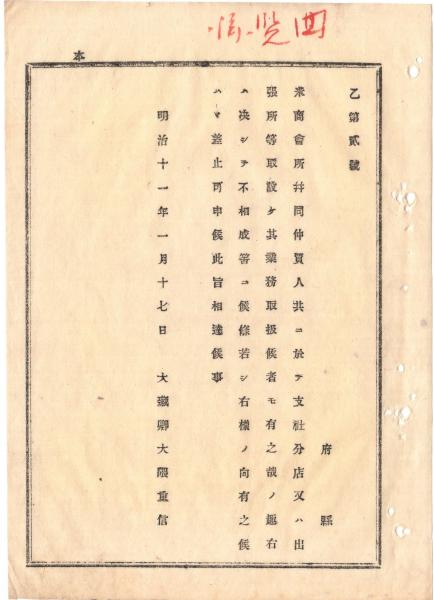 回覧済
本
乙第貳號
府縣
米商會所幷同仲買人共ニ於テ支社分店又ハ出
張所等取設ケ其業務取扱候者モ有之哉ノ趣右
ハ决シテ不相成筈ニ候條若シ右樣ノ向有之候
ハヽ差止可申候此旨相達候事
明治十一年一月十七日 大藏卿大隈重信